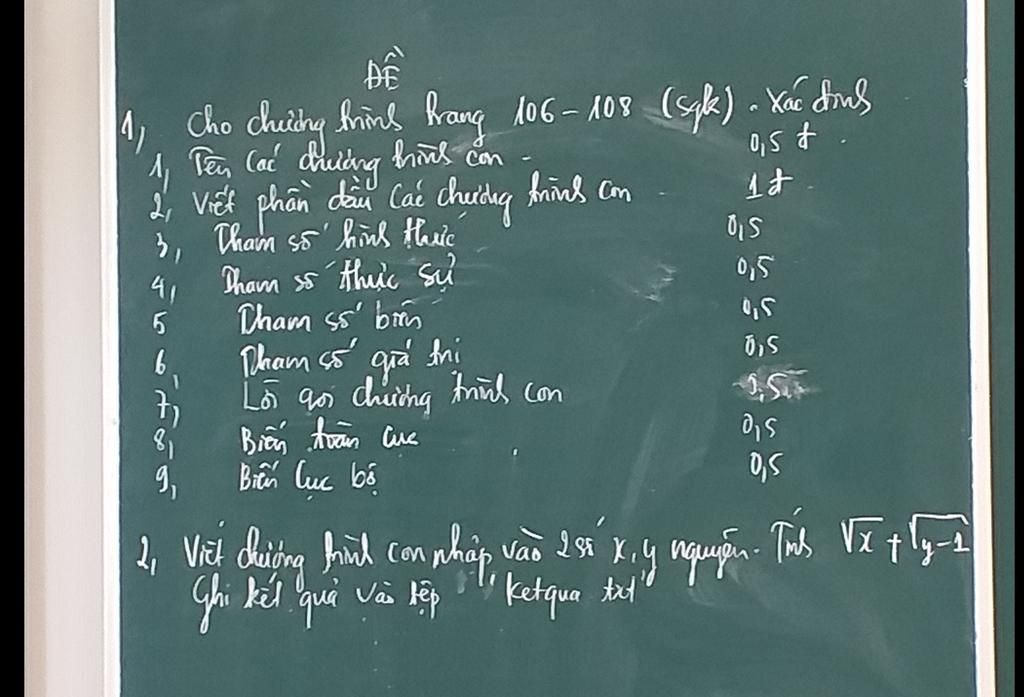 ĐỀ
1, Cho chương trình trang 106-108 (sgk). Xác định
1, Tên các chương trình con. 0,5 đ.
2, Viết phần đầu các chương trình con 1đ
3, Tham số hình thức 0,5
4, Tham số thực sự 0,5
5 Tham số biến 0,5
6, Tham số giá trị 0,5
7, Lời gọi chương trình con 0,5
8, Biến toàn cục 0,5
9, Biến cục bộ 0,5
2, Viết chương trình con nhập vào 2 số x, y nguyên. Tính √x + √y-1
Ghi kết quả vào tệp "ketqua txt"